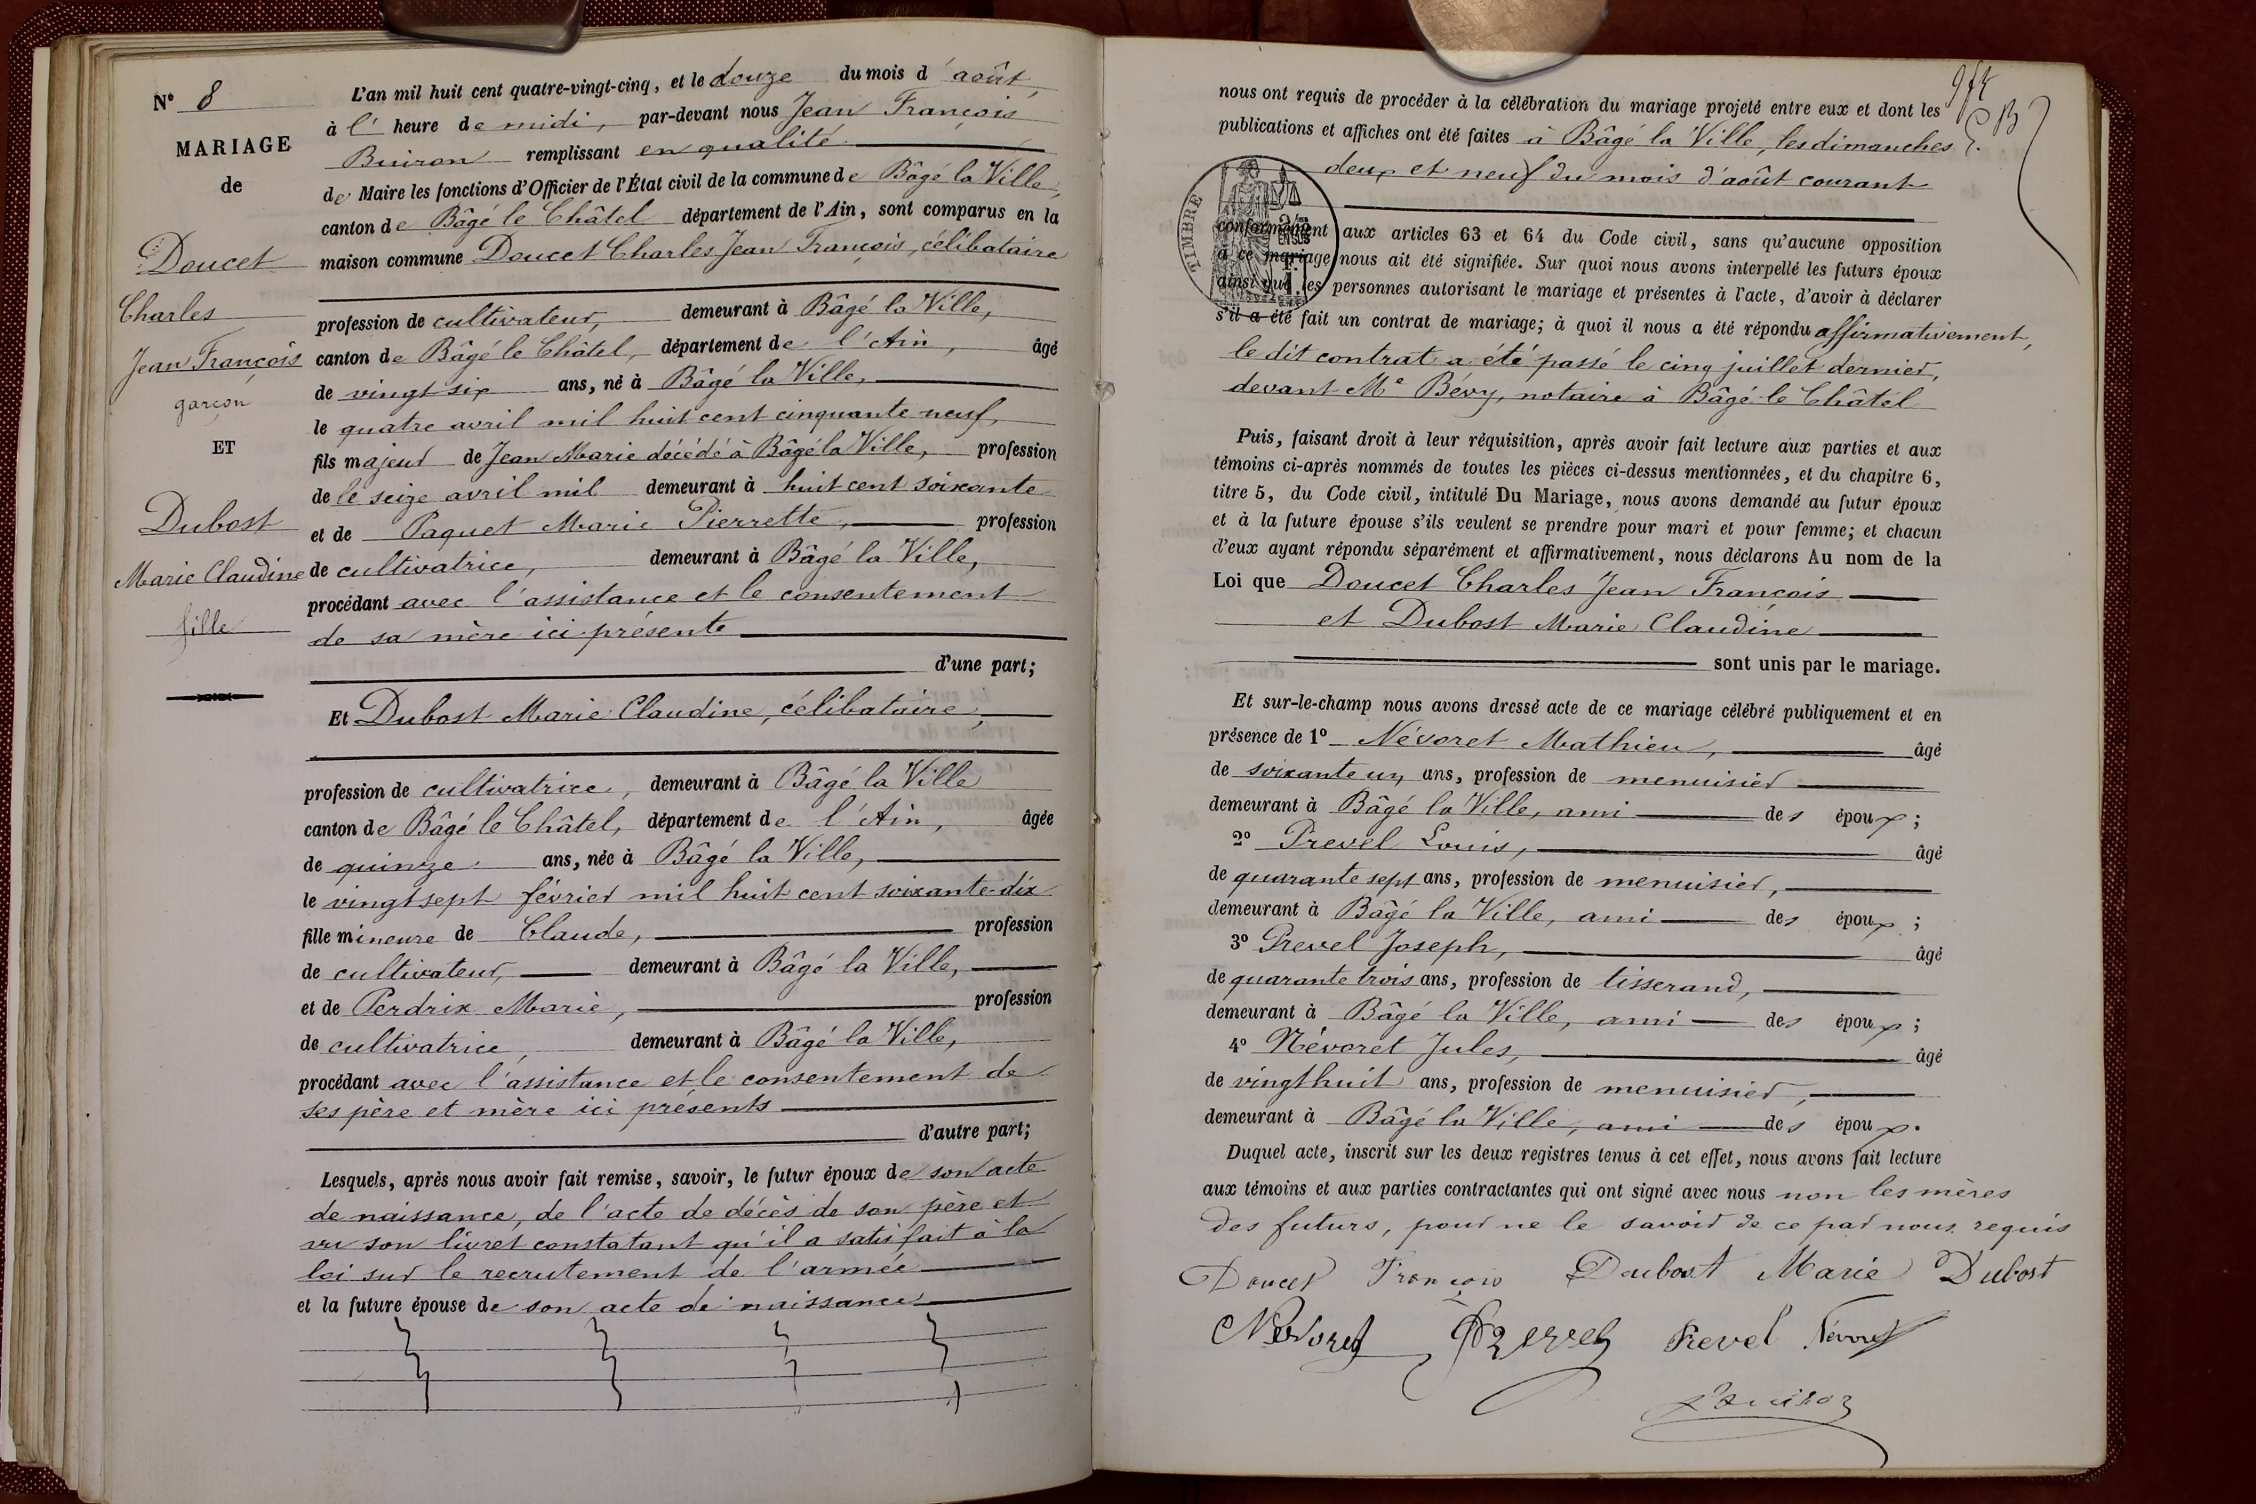 N° 8
MARIAGE
de
Doucet
Charles
Jean François
garçon
ET
Dubost
Marie Claudine
fille
L'an mil huit cent quatre-vingt-cinq, et le douze du mois d'août,
à l' heure de midi, par-devant nous Jean François
Buiron remplissant en qualité
de Maire les fonctions d'Officier de l'État civil de la commune de Bâgé la Ville,
canton de Bâgé le Châtel département de l'Ain, sont comparus en la
maison commune Doucet Charles Jean François, célibataire
profession de cultivateur, demeurant à Bâgé la Ville,
canton de Bâgé le Châtel, département de l'Ain, âgé
de vingt six ans, né à Bâgé la Ville,
le quatre avril mil huit cent cinquante neuf,
fils majeur de Jean Marie décédé à Bâgé la Ville, profession
de le seize avril mil demeurant à huit cent soixante
et de Paquet Marie Pierrette, profession
de cultivatrice, demeurant à Bâgé la Ville,
procédant avec l'assistance et le consentement
de sa mère ici présente
d'une part;
Et Dubost Marie Claudine, célibataire,
profession de cultivatrice, demeurant à Bâgé la Ville
canton de Bâgé le Châtel, département de l'Ain, âgée
de quinze ans, née à Bâgé la Ville,
le vingt sept février mil huit cent soixante-dix
fille mineure de Claude, profession
de cultivateur, demeurant à Bâgé la Ville,
et de Perdrix Marie, profession
de cultivatrice, demeurant à Bâgé la Ville,
procédant avec l'assistance et le consentement de
ses père et mère ici présents
d'autre part;
Lesquels, après nous avoir fait remise, savoir, le futur époux de son acte
de naissance, de l'acte de décès de son père et
vu son livret constatant qu'il a satisfait à la
loi sur le recrutement de l'armée
et la future épouse de son acte de naissance
nous ont requis de procéder à la célébration du mariage projeté entre eux et dont les
publications et affiches ont été faites à Bâgé la Ville, les dimanches
deux et neuf du mois d'août courant
TIMBRE
conformément aux articles 63 et 64 du Code civil, sans qu'aucune opposition
à ce mariage nous ait été signifiée. Sur quoi nous avons interpellé les futurs époux
ainsi que les personnes autorisant le mariage et présentes à l'acte, d'avoir à déclarer
s'il a été fait un contrat de mariage; à quoi il nous a été répondu affirmativement,
le dit contrat a été passé le cinq juillet dernier,
devant Me Bévy, notaire à Bâgé le Châtel
Puis, faisant droit à leur réquisition, après avoir fait lecture aux parties et aux
témoins ci-après nommés de toutes les pièces ci-dessus mentionnées, et du chapitre 6,
titre 5, du Code civil, intitulé Du Mariage, nous avons demandé au futur époux
et à la future épouse s'ils veulent se prendre pour mari et pour femme; et chacun
d'eux ayant répondu séparément et affirmativement, nous déclarons Au nom de la
Loi que Doucet Charles Jean François
et Dubost Marie Claudine
sont unis par le mariage.
Et sur-le-champ nous avons dressé acte de ce mariage célébré publiquement et en
présence de 1° Névoret Mathieu, âgé
de soixante un ans, profession de menuisier
demeurant à Bâgé la Ville, ami des époux;
2° Prevel Louis, âgé
de quarante sept ans, profession de menuisier,
demeurant à Bâgé la Ville, ami des époux;
3° Prevel Joseph, âgé
de quarante trois ans, profession de tisserand,
demeurant à Bâgé la Ville, ami des époux;
4° Névoret Jules, âgé
de vingt huit ans, profession de menuisier,
demeurant à Bâgé la Ville, ami des époux.
Duquel acte, inscrit sur les deux registres tenus à cet effet, nous avons fait lecture
aux témoins et aux parties contractantes qui ont signé avec nous non les mères
des futurs, pour ne le savoir de ce par nous requis
Doucet François Dubost Marie Dubost
Nevoret Prevel Prevel Névoret
Buiron